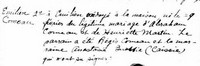 Emilien Comeau
Emilien ondoyé à la maison né le 29
février du légitime mariage d'Abraham
Comeau et de Henriette Martin. Le
parrain a été Régis Comeau et la mar
raine
qui n'ont su signer.